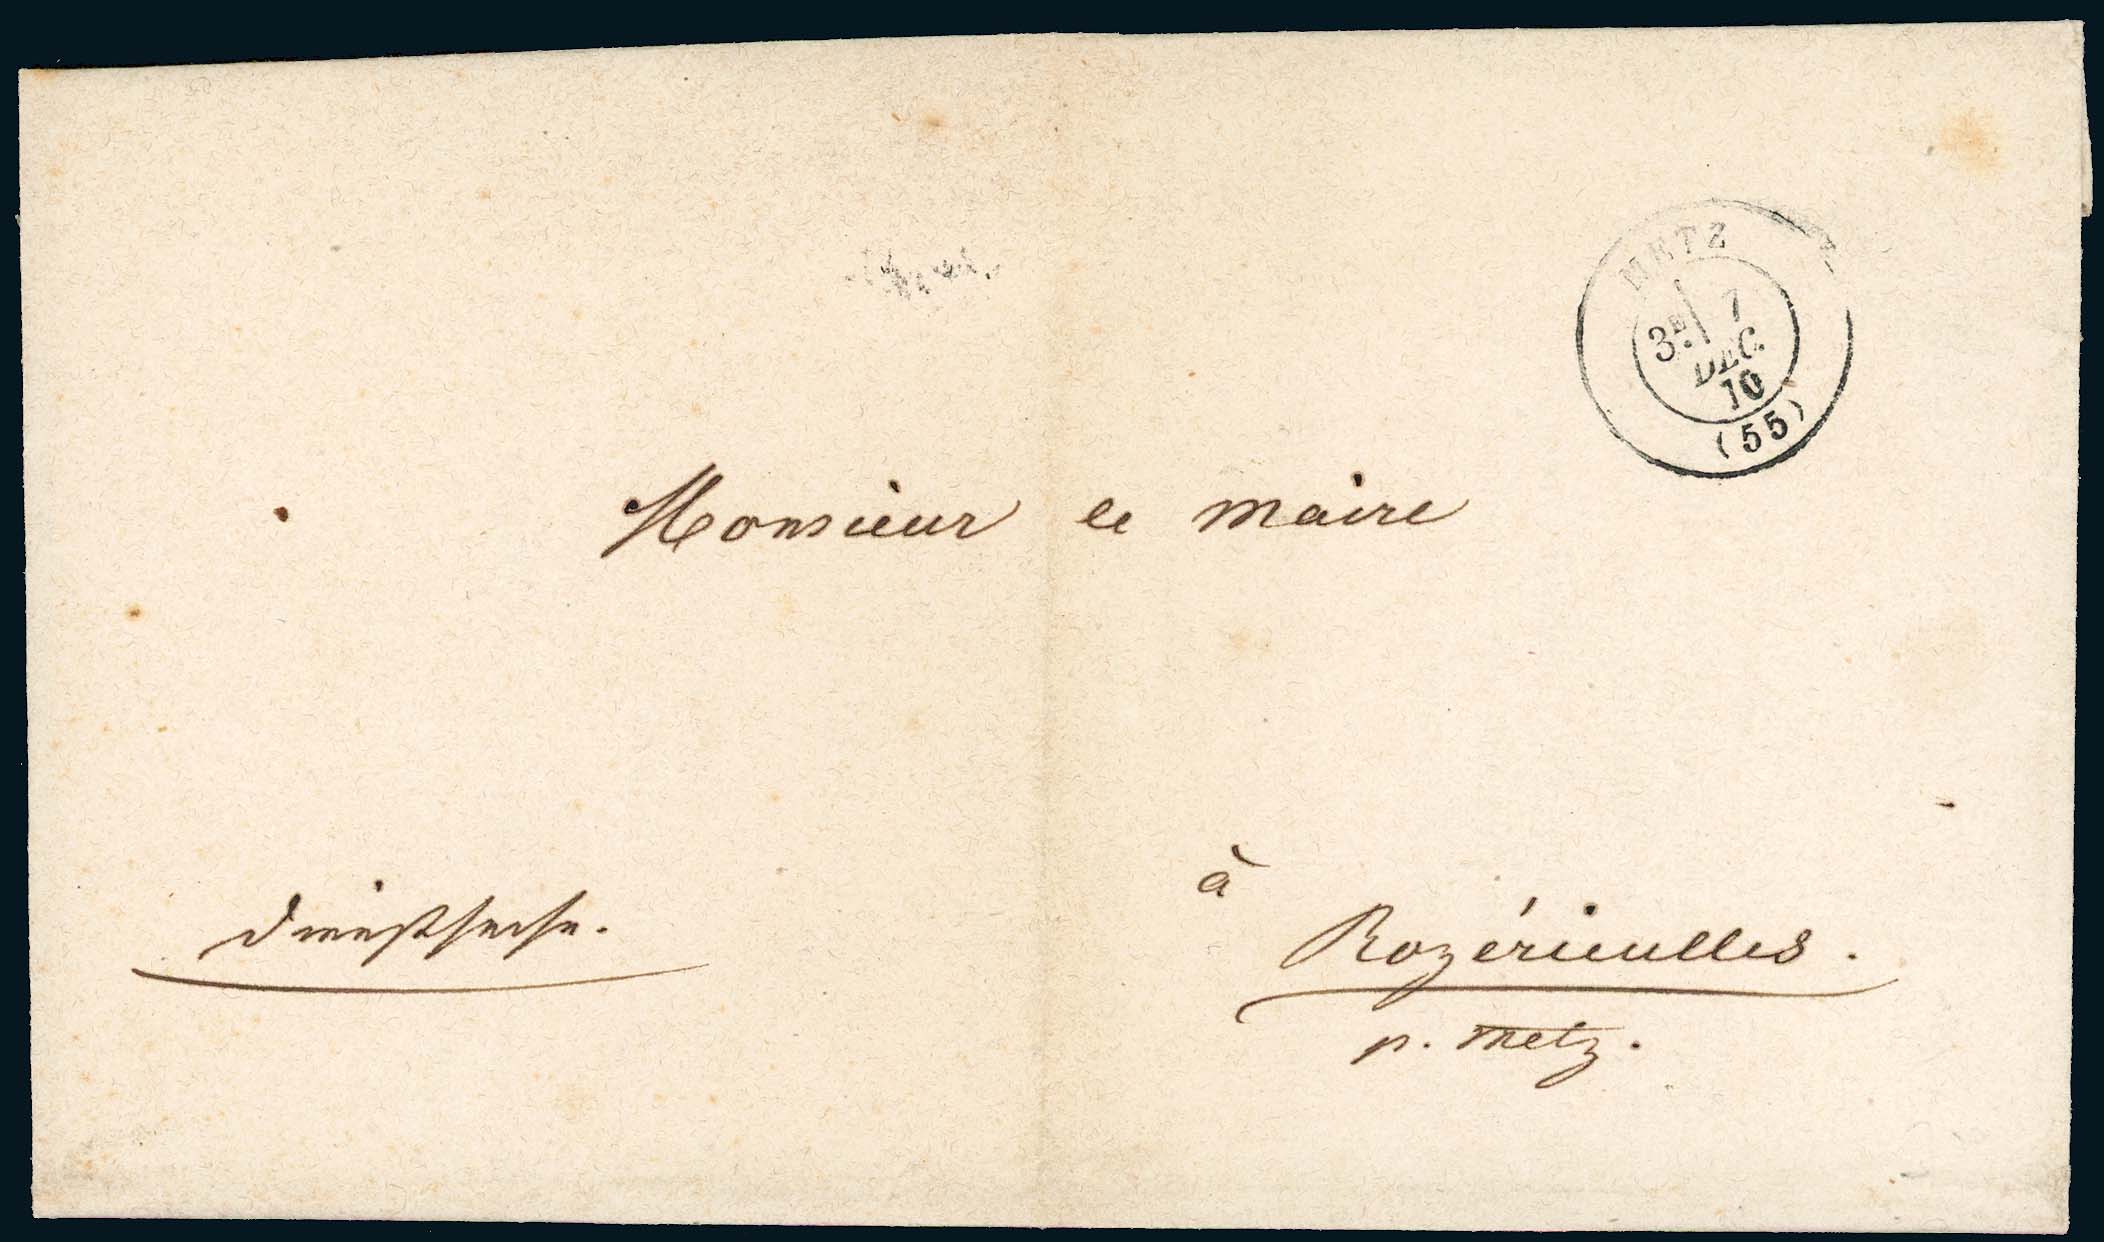 METZ
3E 7
DEC.
10
(55)
Monsieur le Maire
à
Dienstsache.
Rozérieulles.
p. Metz.